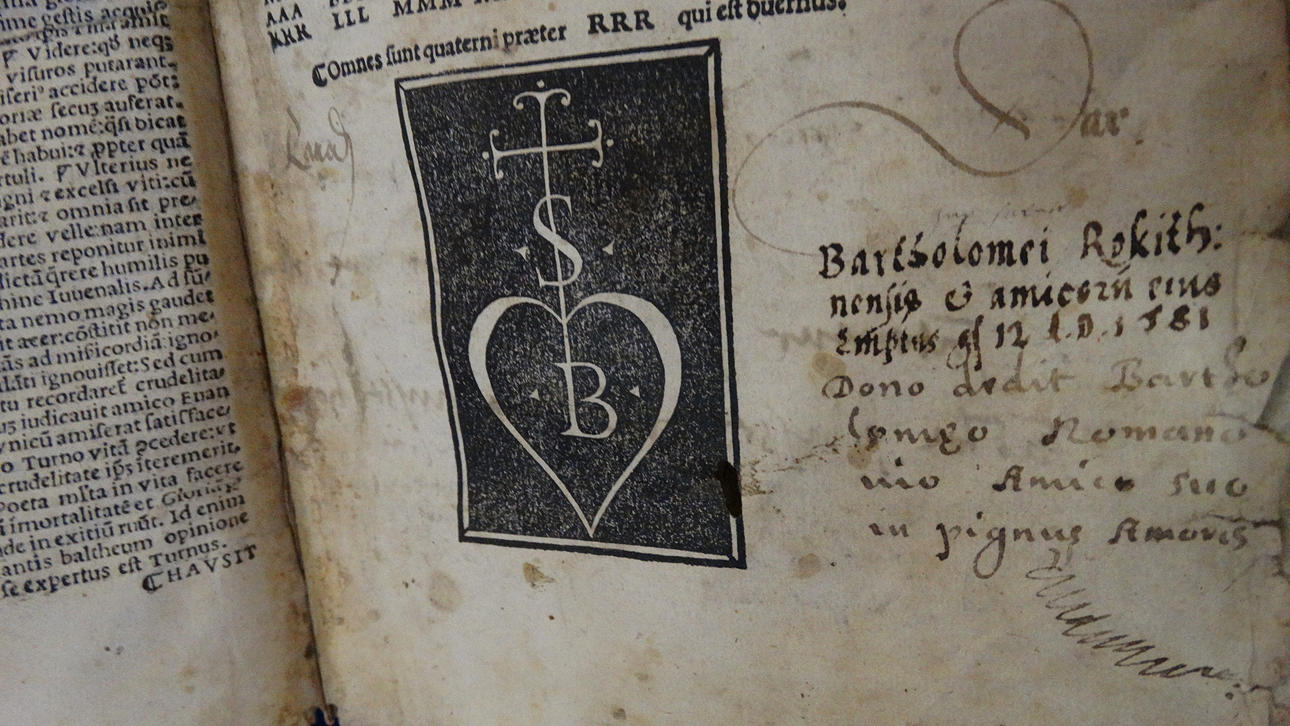 me gestis acquis
ℙ Videre:qď neqз
visuros putarant.
iseriꝰ accidere põt:
oriæ secuʒ auferat.
abet nomẽ:q̃si dicat
ẽ habui:⁊ ꝓpter quã
rtuli. ℙ Vlterius ne
igni ⁊ excelsi viti:cũ
arit:⁊ omnia sit pre⸗
dere velle:nam inter
artes reponitur inimi
dictã q̃rere humilis pu
hine Iuuenalis. Ad sũ⸗
ta nemo magis gaudet
it acer:cõstitit nõn me⸗
ãs ad mĩsericordiã igno⸗
lãti ignouisset:Sed cum
tu recordaret crudelita⸗
uʒ iudicauit amico Euan
ynicũ amiserat satisface⸗
o Turno vitã ꝓcedere:vt
crudelitate ip̃s iteremerit.
poeta mĩta in vita facere
i ĩmortalitatẽ et Gloriã:
de in exitiũ ruũt. Id enim
antis baltheum opinione
se expertus est Turnus.
ℂHAVSIT
AAA
KKK LLL MMM
ℂOmnes sunt quaterni præter RRR qui est duernus.
S
B
ar
Bartholomei Rokith:
nensis & amicorũ eius
Emptus 12 A.D. 1581
Dono dedit Bartho
Romano
Amico suo
in pignus Amoris